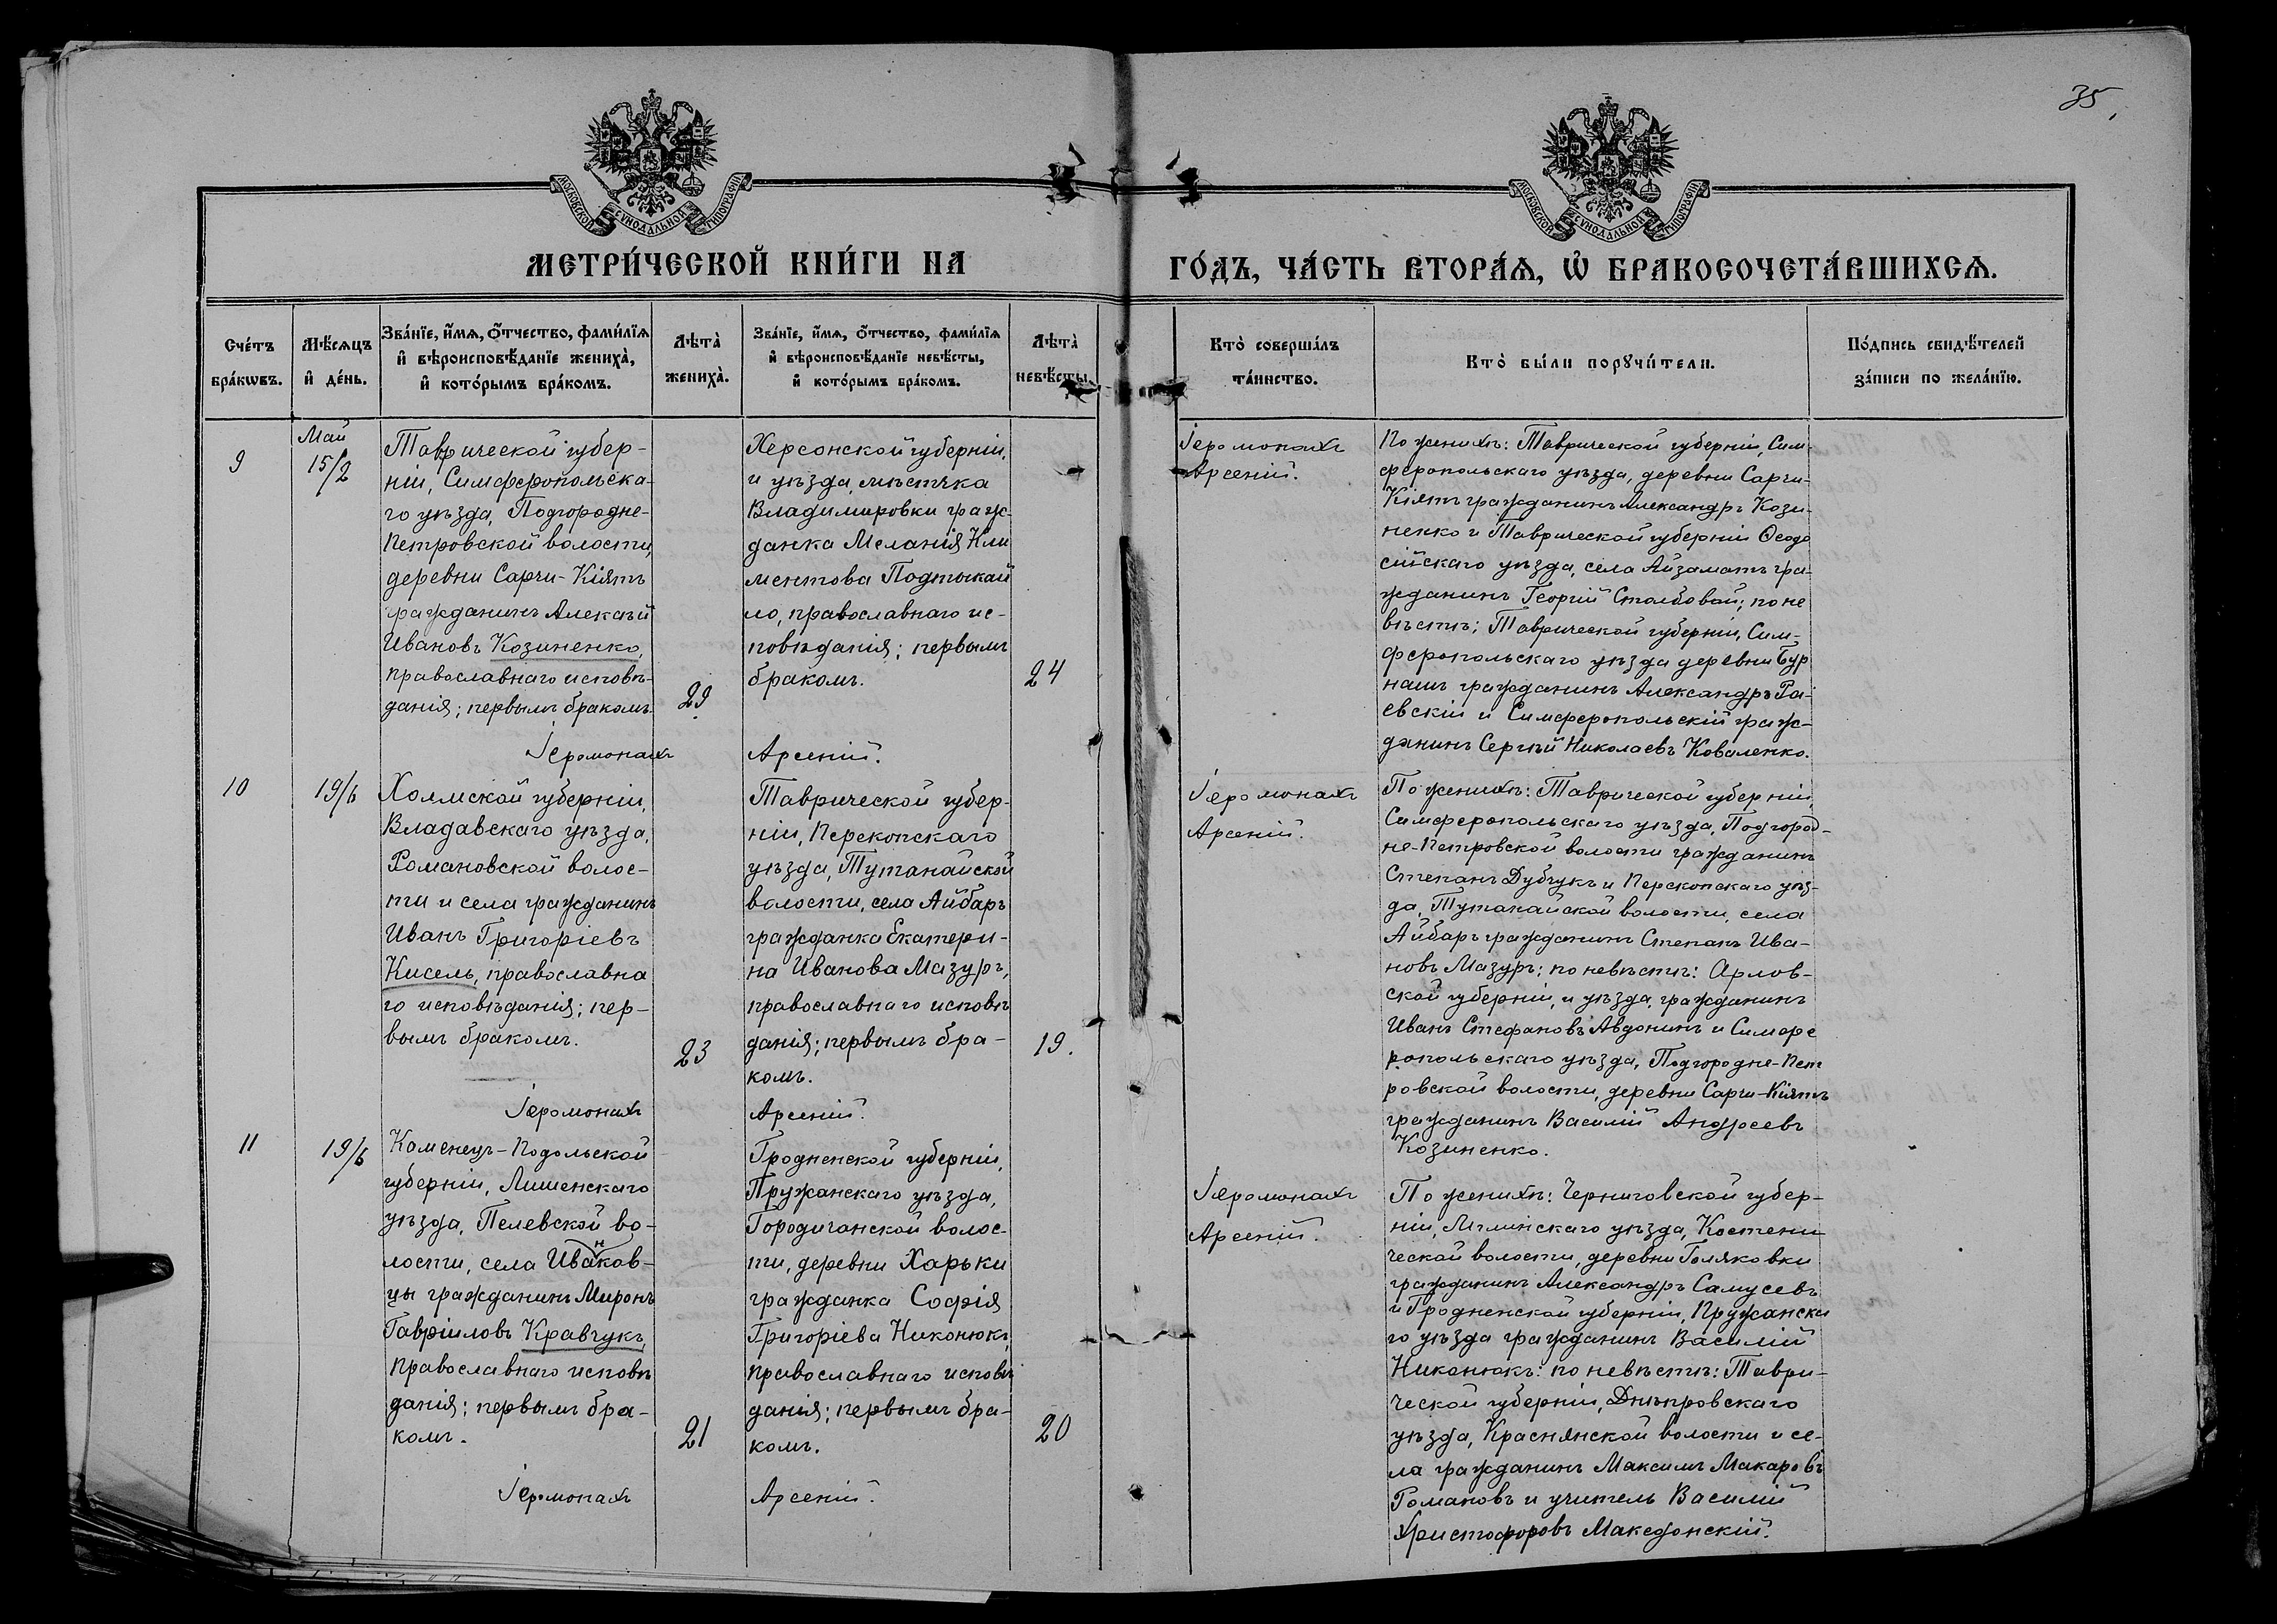 35,
МОСКОВСКОЙ СѴНОДАЛЬНОЙ ТИПОГРАФІИ
МОСКОВСКОЙ СѴНОДАЛЬНОЙ ТИПОГРАФІИ
МЕТРИ́ЧЕСКОЙ КНИ́ГИ НА
ГО́ДЪ, ЧА́СТЬ ВТОРА́Ѧ, Ѽ БРАКОСОЧЕТА́ВШИХСѦ.
Сче́тъ
бра́кωвъ.
Мѣ́сѧцъ
и҆ де́нь.
Зва́нїе, и҆́мѧ, ѻ҆́тчество, фами́лїѧ
и҆ вѣроисповѣ́данїе жениха̀,
и҆ кото́рымъ бра́комъ.
Лѣта̀
жениха̀.
Зва́нїе, и҆́мѧ, ѻ҆́тчество, фами́лїѧ
и҆ вѣроисповѣ́данїе невѣ́сты,
и҆ кото́рымъ бра́комъ.
Лѣта̀
невѣ́сты
Кто̀ соверша́лъ
та́инство.
Кто̀ бы́ли порꙋчи́тели.
По́дпись свидѣ́телей
за́писи по жела́нїю.
9
Май
15/2
Таврической губер-
ніи, Симферопольска-
го уѣзда, Подгородне-
Петровской волости,
деревни Сарчи-Кіятъ
гражданинъ Алексѣй
Ивановъ Козиненко,
православнаго исповѣ-
данія; первымъ бракомъ.
29
Херсонской губерніи,
и уѣзда, мѣстчка
Владимировки граж-
данка Меланія Кли
ментова Подтыкай
ло, православнаго ис-
повѣданія; первымъ
бракомъ.
24
Іеромонахъ Арсеній.
Іеромонахъ
Арсеній.
По женихѣ: Таврической губерніи, Сим-
феропольскаго уѣзда, деревни Сарчи-
Кіятъ гражданинъ Александръ Кози-
ненко и Таврической губерніи Ѳеодо
сійскаго уѣзда, села Айзаматъ гра-
жданинъ Георгій Столбовой; по не
вѣстѣ: Таврической губерніи, Сим-
феропольскаго уѣзда деревни Бур
нашъ гражданинъ Александръ Ра-
евскій и Симферопольскій граж-
данинъ Сергѣй Николаевъ Коваленко.
10
19/6
Холмской губерніи,
Владавскаго уѣзда,
Романовской волос-
ти и села гражданинъ
Иванъ Григоріевъ
Кисель, православна
го исповѣданія; пер-
вымъ бракомъ.
23
Таврической губер-
ніи, Перекопскаго
уѣзда, Тутанайской
волости, села Айбаръ
гражданка Екатери-
на Иванова Мазуръ,
православнаго исповѣ
данія; первымъ бра-
комъ.
19.
Іеромонахъ Арсеній.
Іеромонахъ
Арсеній.
По женихѣ: Таврической губерніи,
Симферопольскаго уѣзда, Подгород-
не-Петровской волости гражданинъ
Степанъ Дубчукъ и Перекопскаго уѣз-
да, Тутанайской волости, села
Айбаръ гражданинъ Степанъ Ива-
новъ Мазуръ; по невѣстѣ: Арлов-
ской губерніи, и уѣзда, гражданинъ
Иванъ Стефановъ Авдонинъ и Симфе
ропольскаго уѣзда, Подгородне-Пет
ровской волости, деревни Сарчи-Кіятъ
гражданинъ Василій Андреевъ
Козиненко.
11
19/6
Каменецъ-Подольской
губерніи, Лишенскаго
уѣзда, Пелевской во-
лости, села Иванков-
цы гражданинъ Миронъ
Гавріиловъ Кравчукъ,
православнаго исповѣ
данія; первымъ бра-
комъ.
21
Гродненской губерніи,
Пружанскаго уѣзда,
Городичанской волос-
ти, деревни Харьки
гражданка Софія
Григоріева Никонюкъ,
православнаго исповѣ
данія; первымъ бра-
комъ.
20
Іеромонахъ Арсеній.
Іеромонахъ
Арсеній.
По женихѣ: Черниговской губер-
ніи, Мглинскаго уѣзда, Костени
ческой волости, деревни Голяковки
гражданинъ Александръ Самусевъ
и Гродненской губерніи, Пружанска
го уѣзда гражданинъ Василій
Никонюкъ: по невѣстѣ: Таври-
ческой губерніи, Днѣпровскаго
уѣзда, Краснянской волости и се-
ла гражданинъ Максимъ Макаровъ
Романовъ и учитель Василій
Христофоровъ Македонскій.